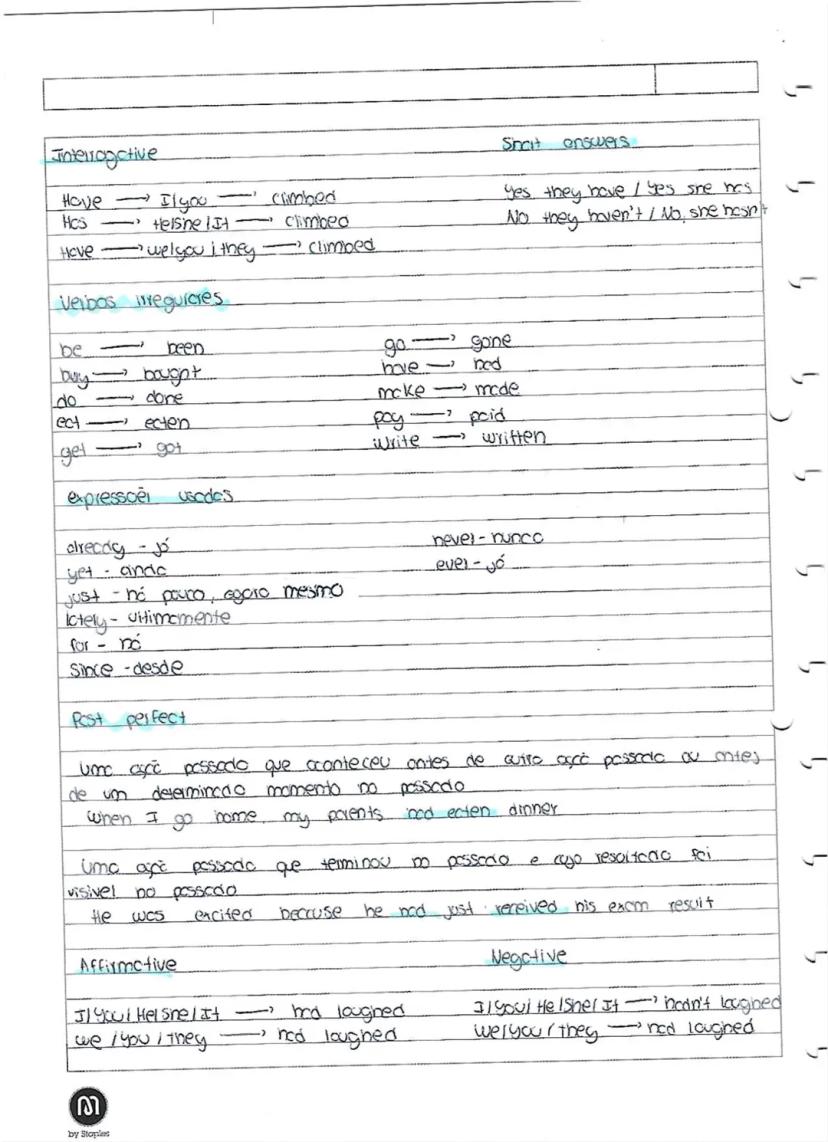 Interrogative
Short answers
Have → I/you → climbed
Yes they have / Yes she has
Has → He/She/It → climbed
No they haven't / No, she hasn't
Have → we/you/they → climbed
Verbos irregulares
be → been
go → gone
buy → bought
have → had
do → done
make → made
eat → eaten
pay → paid
get → got
write → written
expressões usadas
already - já
never - nunca
yet - ainda
ever - já
just - há pouco, agora mesmo
lately - ultimamente
for - há
since - desde
Past perfect
Uma açõ passada que aconteceu antes de outra açõ passada ou antes
de um determinado momento no passado
When I go home, my parents had eaten dinner
Uma açõ passada que terminou no passado e cujo resultado foi
visivel no passado
He was excited because he had just received his exam result
Affirmative
Negative
I/You/He/She/It → had laughed
I/You/He/She/It → hadn't laughed
we/you/they → had laughed
we/you/they → had laughed
M
by Staples